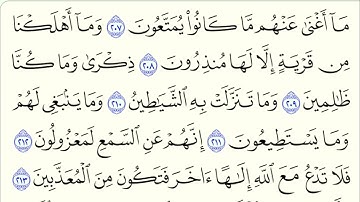 مَآ أَغۡنَىٰ عَنۡهُم مَّا كَانُواْ يُمَتَّعُونَ ٢٠٧ وَمَآ أَهۡلَكۡنَا
مِن قَرۡيَةٍ إِلَّا لَهَا مُنذِرُونَ ٢٠٨ ذِكۡرَىٰ وَمَا كُنَّا
ظَٰلِمِينَ ٢٠٩ وَمَا تَنَزَّلَتۡ بِهِ ٱلشَّيَٰطِينُ ٢١٠ وَمَا يَنۢبَغِي لَهُمۡ
وَمَا يَسۡتَطِيعُونَ ٢١١ إِنَّهُمۡ عَنِ ٱلسَّمۡعِ لَمَعۡزُولُونَ ٢١٢
فَلَا تَدۡعُ مَعَ ٱللَّهِ إِلَٰهًا ءَاخَرَ فَتَكُونَ مِنَ ٱلۡمُعَذَّبِينَ ٢١٣